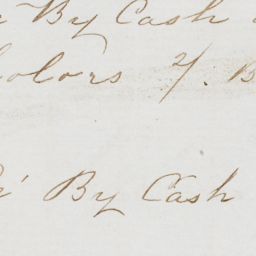 By Cash
olors 4/. B
By Cash